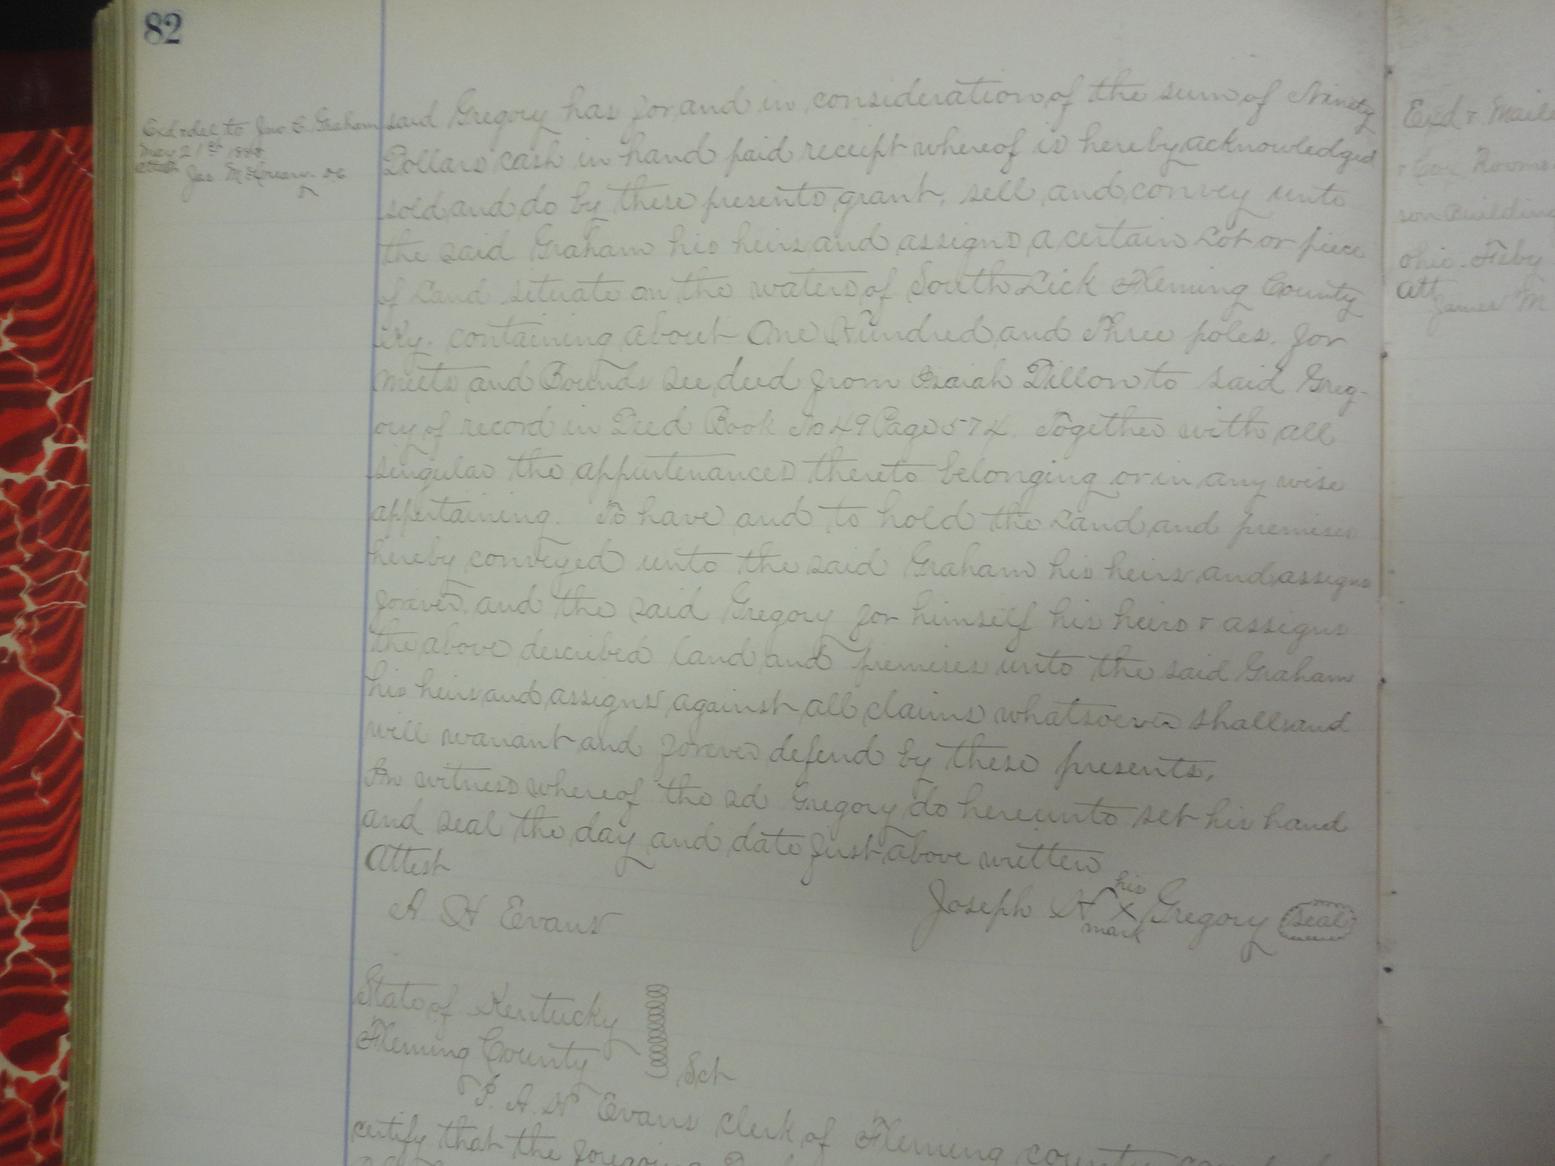 82
Exd & del to Jno C. Graham
Nov 21st 1888
attest Jas M
said Gregory has for and in consideration of the sum of Ninety
Dollars cash in hand paid receipt whereof is hereby acknowledged
sold and do by these presents grant, sell and convey unto
the said Graham his heirs and assigns a certain Lot or piece
of Land situate on the waters of South Lick Fleming County
Ky. containing about One Hundred and Three poles. for
meets and Bounds see deed from Isaiah Dillon to said Greg-
ory of record in Deed Book No 49 Page 574. Together with all
singular the appurtenances thereto belonging or in any wise
appertaining. To have and to hold the Land and premises
hereby conveyed unto the said Graham his heirs and assigns
forever and the said Gregory for himself his heirs & assigns
the above described land and premises unto the said Graham
his heirs and assigns against all claims whatsoever shall and
will warrant and forever defend by these presents.
In witness whereof the sd Gregory do hereunto set his hand
and seal the day and date first above written
Attest
A H Evans
Joseph H his X mark Gregory (seal)
State of Kentucky
Fleming County
Sct
I. A. H Evans clerk of Fleming county
certify that the foregoing
Exd & Maile
son Building
Ohio. Feby
Att
James M